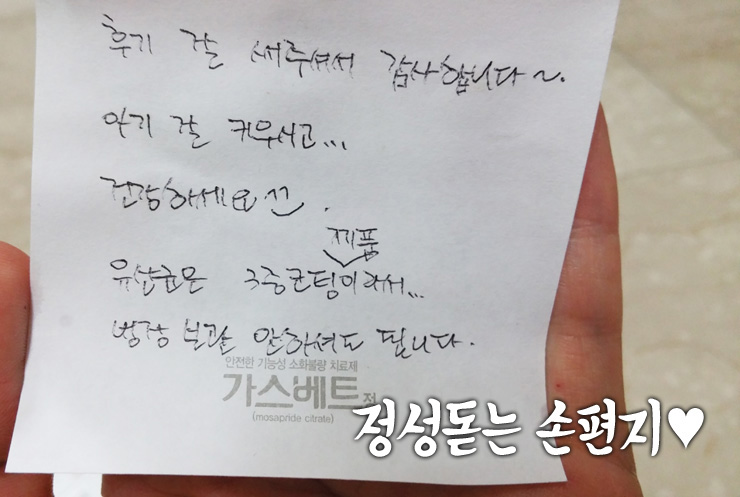 후기 잘 써주셔서 감사합니다~.
아기 잘 키우시고...
건강하세요
제품
유산균은 3중코팅이라서...
냉장보관 안하셔도 됩니다.
안전한 기능성 소화불량 치료제
가스베트정
(mosapride citrate)
정성돋는 손편지♥